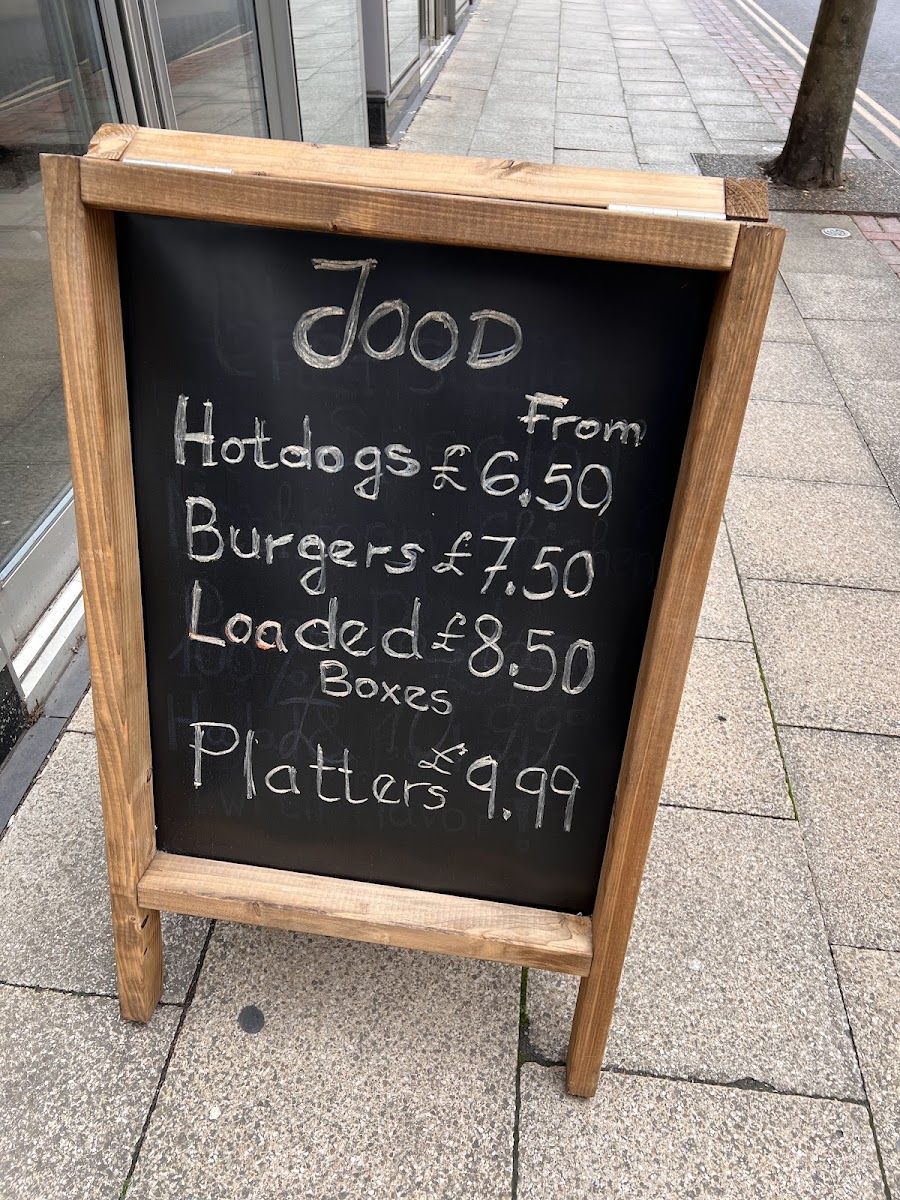 JOOD
From
Hotdogs £6.50
Burgers £7.50
Loaded £8.50
Boxes
Platters £9.99